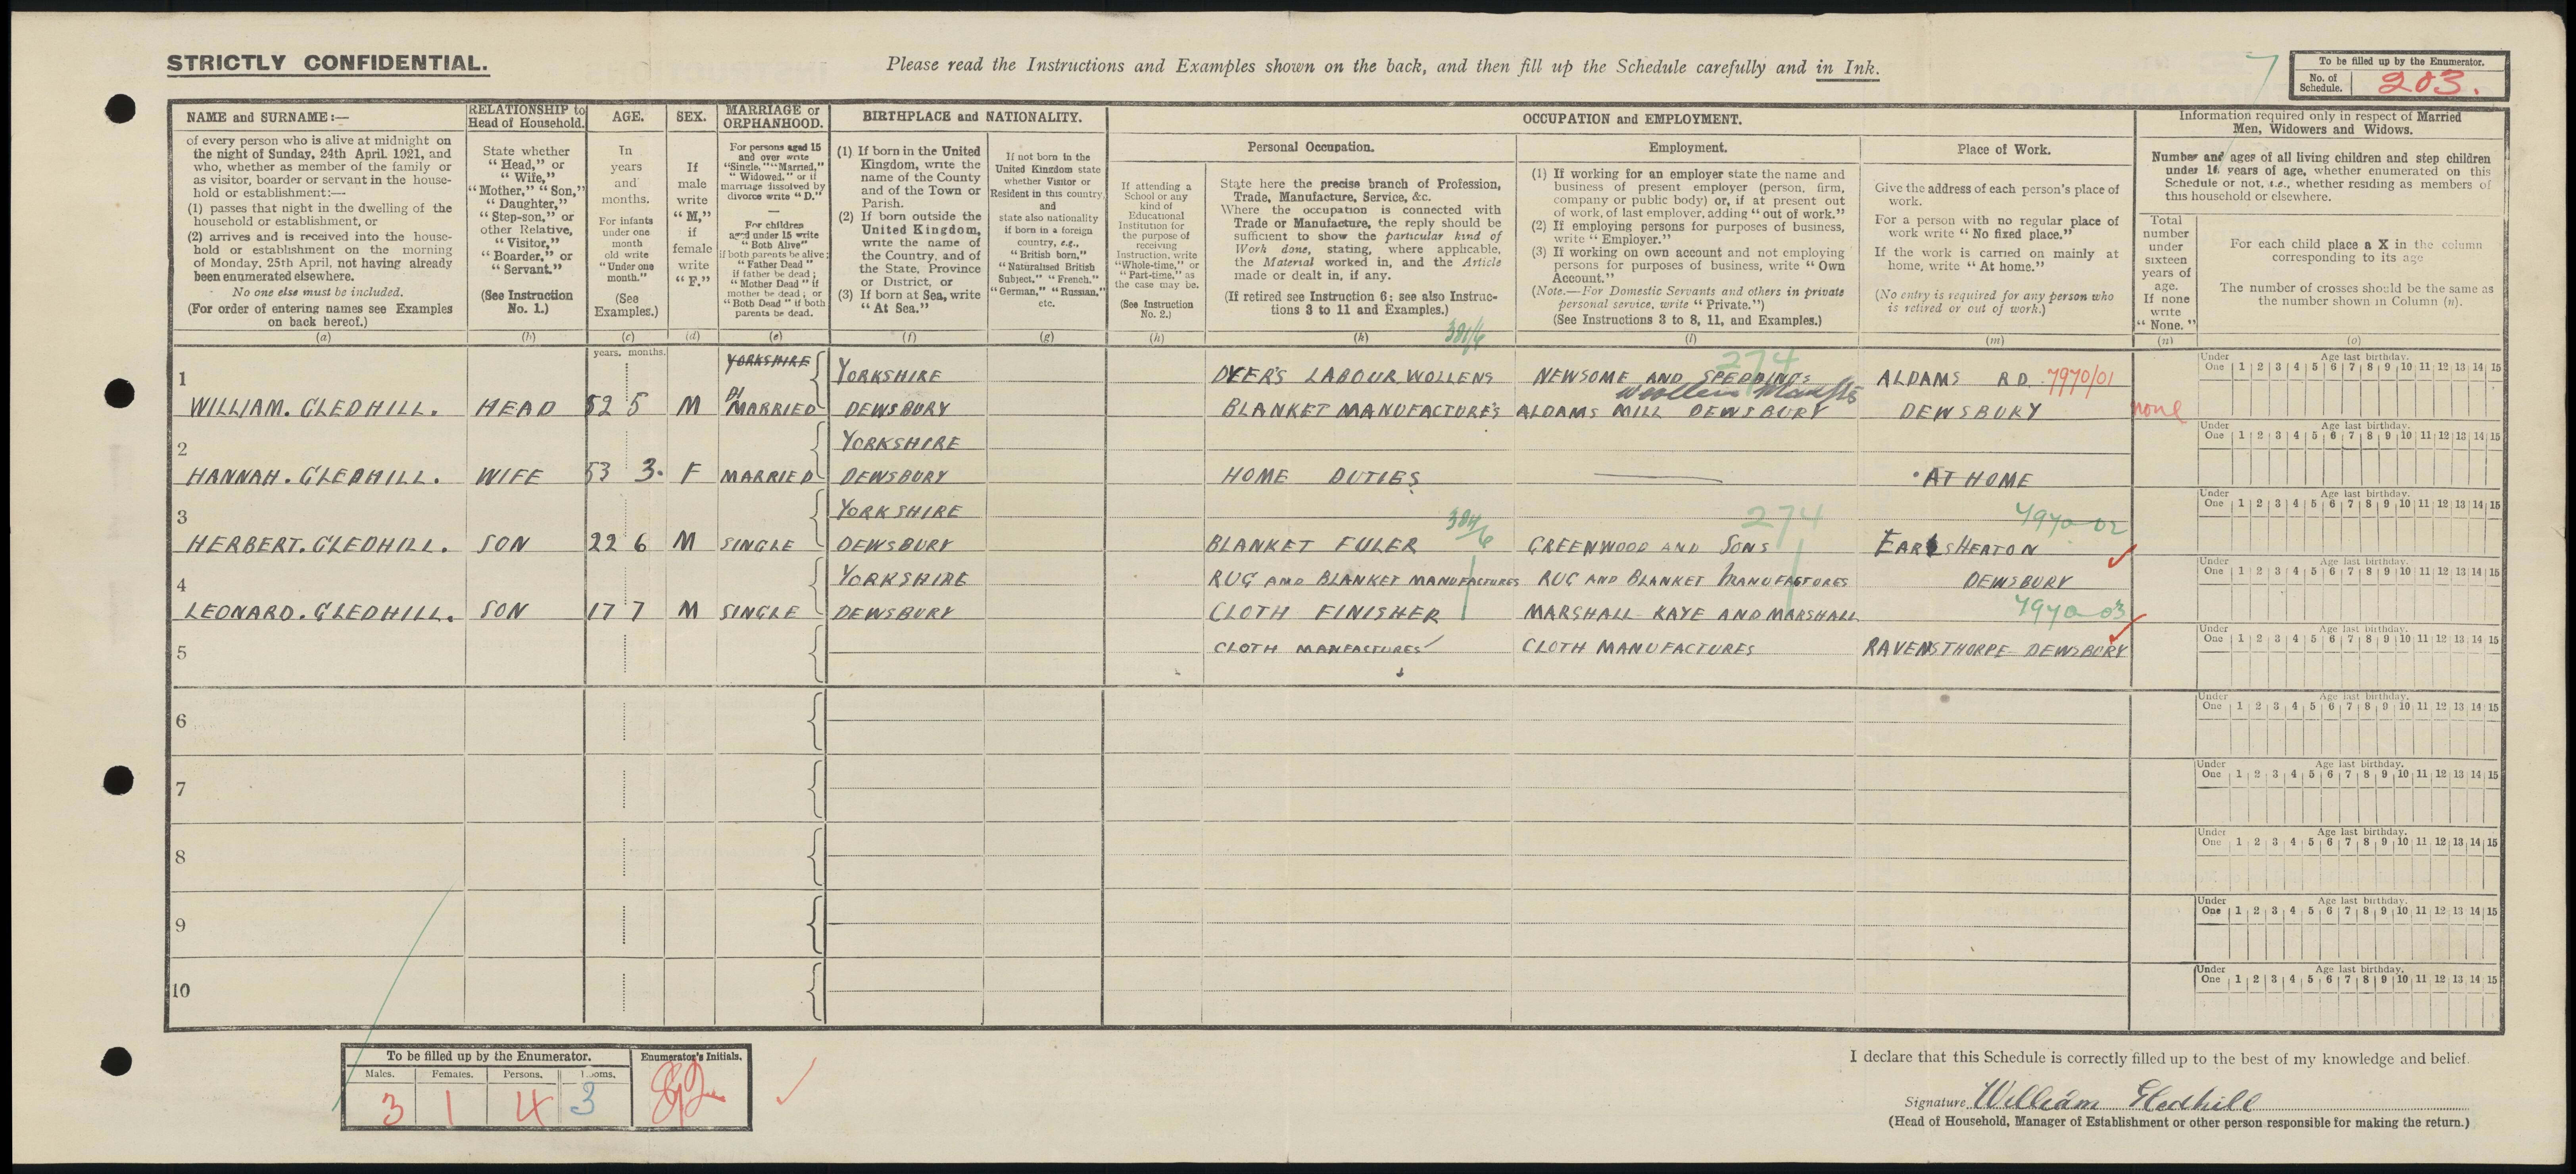 STRICTLY CONFIDENTIAL.
Please read the Instructions and Examples shown on the back, and then fill up the Schedule carefully and in Ink.
To be filled up by the Enumerator.
No. of Schedule. 203.
NAME and SURNAME:—
of every person who is alive at midnight on
the night of Sunday, 24th April, 1921, and
who, whether as member of the family or
as visitor, boarder or servant in the house-
hold or establishment:—
(1) passes that night in the dwelling of the
household or establishment, or
(2) arrives and is received into the house-
hold or establishment on the morning
of Monday, 25th April, not having already
been enumerated elsewhere.
No one else must be included.
(For order of entering names see Examples
on back hereof.)
(a)
RELATIONSHIP to
Head of Household.
State whether
"Head," or
"Wife,"
"Mother," "Son,"
"Daughter,"
"Step-son," or
other Relative,
"Visitor,"
"Boarder," or
"Servant."
(See Instruction
No. 1.)
(b)
AGE.
In
years
and
months.
For infants
under one
month
old write
"Under one
month."
(See
Examples.)
(c)
SEX.
If
male
write
"M,"
if
female
write
"F."
(d)
MARRIAGE or
ORPHANHOOD.
For persons aged 15
and over write
"Single," "Married,"
"Widowed," or if
marriage dissolved by
divorce write "D."
For children
aged under 15 write
"Both Alive"
if both parents be alive;
"Father Dead"
if father be dead;
"Mother Dead" if
mother be dead; or
"Both Dead" if both
parents be dead.
(e)
BIRTHPLACE and NATIONALITY.
(1) If born in the United
Kingdom, write the
name of the County
and of the Town or
Parish.
(2) If born outside the
United Kingdom,
write the name of
the Country, and of
the State, Province
or District, or
(3) If born at Sea, write
"At Sea."
(f)
If not born in the
United Kingdom state
whether Visitor or
Resident in this country,
and
state also nationality
if born in a foreign
country, e.g.,
"British born,"
"Naturalised British
Subject," "French,"
"German," "Russian,"
etc.
(g)
OCCUPATION and EMPLOYMENT.
If attending a
School or any
kind of
Educational
Institution for
the purpose of
receiving
Instruction, write
"Whole-time," or
"Part-time," as
the case may be.
(See Instruction
No. 2.)
(h)
Personal Occupation.
State here the precise branch of Profession,
Trade, Manufacture, Service, &c.
Where the occupation is connected with
Trade or Manufacture, the reply should be
sufficient to show the particular kind of
Work done, stating, where applicable,
the Material worked in, and the Article
made or dealt in, if any.
(If retired see Instruction 6; see also Instruc-
tions 3 to 11 and Examples.)
(k)
Employment.
(1) If working for an employer state the name and
business of present employer (person, firm,
company or public body) or, if at present out
of work, of last employer, adding "out of work."
(2) If employing persons for purposes of business,
write "Employer."
(3) If working on own account and not employing
persons for purposes of business, write "Own
Account."
(Note.—For Domestic Servants and others in private
personal service, write "Private.")
(See Instructions 3 to 8, 11, and Examples.)
(l)
Place of Work.
Give the address of each person's place of
work.
For a person with no regular place of
work write "No fixed place."
If the work is carried on mainly at
home, write "At home."
(No entry is required for any person who
is retired or out of work.)
(m)
Information required only in respect of Married
Men, Widowers and Widows.
Number and ages of all living children and step children
under 16 years of age, whether enumerated on this
Schedule or not, i.e., whether residing as members of
this household or elsewhere.
Total
number
under
sixteen
years of
age.
If none
write
"None."
(n)
For each child place a X in the column
corresponding to its age
The number of crosses should be the same as
the number shown in Column (n).
(o)
years. months.
381/6
274
YORKSHIRE YORKSHIRE DYER'S LABOUR WOLLENS NEWSOME AND SPEDDINGS ALDAMS RD 7970/01
1 WILLIAM. GLEDHILL. HEAD 52 5 M MARRIED DEWSBURY BLANKET MANUFACTURE'S ALDAMS MILL DEWSBURY DEWSBURY none
Under One 1 2 3 4 5 6 7 8 9 10 11 12 13 14 15 Age last birthday.
YORKSHIRE
2 HANNAH. GLEDHILL. WIFE 53 3. F MARRIED DEWSBURY HOME DUTIES AT HOME
Under One 1 2 3 4 5 6 7 8 9 10 11 12 13 14 15 Age last birthday.
YORKSHIRE 384/6 274 7970-02
3 HERBERT. GLEDHILL. SON 22 6 M SINGLE DEWSBURY BLANKET FULER GREENWOOD AND SONS EARLSHEATON
Under One 1 2 3 4 5 6 7 8 9 10 11 12 13 14 15 Age last birthday.
YORKSHIRE RUG AND BLANKET MANUFACTURES RUG AND BLANKET MANUFACTURES DEWSBURY
4 LEONARD. GLEDHILL. SON 17 7 M SINGLE DEWSBURY CLOTH FINISHER MARSHALL KAYE AND MARSHALL 7970-03
Under One 1 2 3 4 5 6 7 8 9 10 11 12 13 14 15 Age last birthday.
5 CLOTH MANFACTURES CLOTH MANUFACTURES RAVENSTHORPE DEWSBURY
Under One 1 2 3 4 5 6 7 8 9 10 11 12 13 14 15 Age last birthday.
6
Under One 1 2 3 4 5 6 7 8 9 10 11 12 13 14 15 Age last birthday.
7
Under One 1 2 3 4 5 6 7 8 9 10 11 12 13 14 15 Age last birthday.
8
Under One 1 2 3 4 5 6 7 8 9 10 11 12 13 14 15 Age last birthday.
9
Under One 1 2 3 4 5 6 7 8 9 10 11 12 13 14 15 Age last birthday.
10
Under One 1 2 3 4 5 6 7 8 9 10 11 12 13 14 15 Age last birthday.
To be filled up by the Enumerator.
Males. Females. Persons. Rooms.
3 1 4 3
Enumerator's Initials.
I declare that this Schedule is correctly filled up to the best of my knowledge and belief.
Signature William Gledhill
(Head of Household, Manager of Establishment or other person responsible for making the return.)